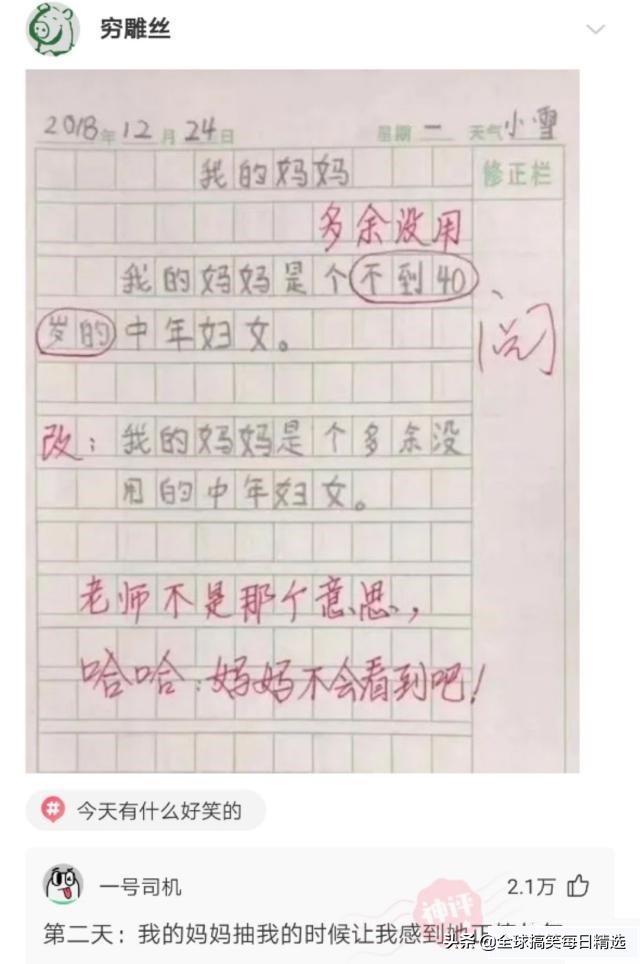 穷雕丝
2018年12月24日 星期一 天气小雪
我的妈妈 修正栏
多余没用
我的妈妈是个不到40
岁的中年妇女。
阅
改：我的妈妈是个多余没
用的中年妇女。
老师不是那个意思，
哈哈：妈妈不会看到吧！
今天有什么好笑的
一号司机 2.1万
神评
第二天：我的妈妈抽我的时候让我感到她正值
头条@全球搞笑每日精选